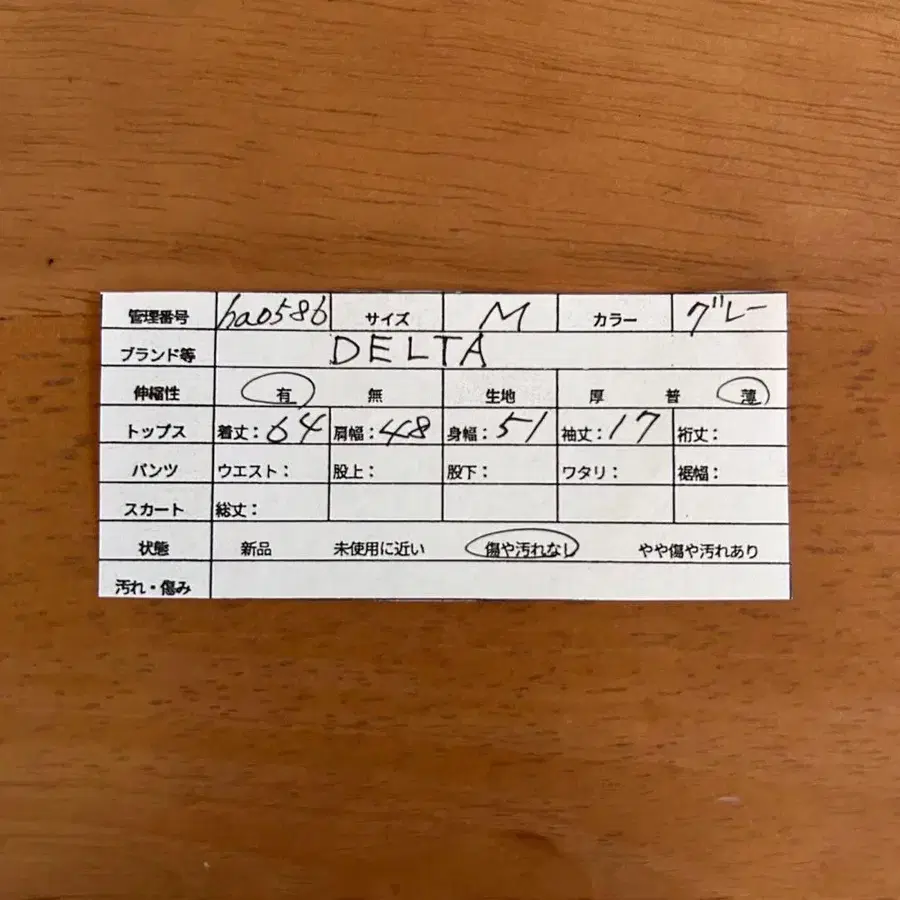 管理番号 ha0586 サイズ M カラー グレー
ブランド等 DELTA
伸縮性 有 無 生地 厚 普 薄
トップス 着丈：64 肩幅：48 身幅：51 袖丈：17 裄丈：
パンツ ウエスト： 股上： 股下： ワタリ： 裾幅：
スカート 総丈：
状態 新品 未使用に近い 傷や汚れなし やや傷や汚れあり
汚れ・傷み